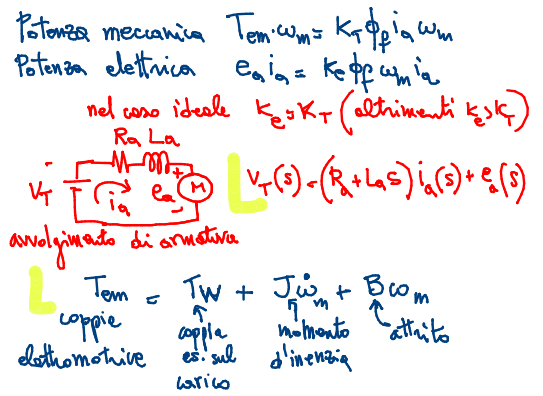 Potenza meccanica Tem·ωm = KT ϕf ia ωm
Potenza elettrica ea ia = Ke ϕf ωm ia
nel caso ideale Ke = KT (altrimenti Ke > KT)
Ra La
VT ia ea + - M
VT(s) = (Ra + LaS) ia(s) + ea(s)
avvolgimento di armatura
L Tem = TW + Jω̇m + Bωm
coppia coppia momento attrito
elettromotrice es. sul d'inerzia
carico